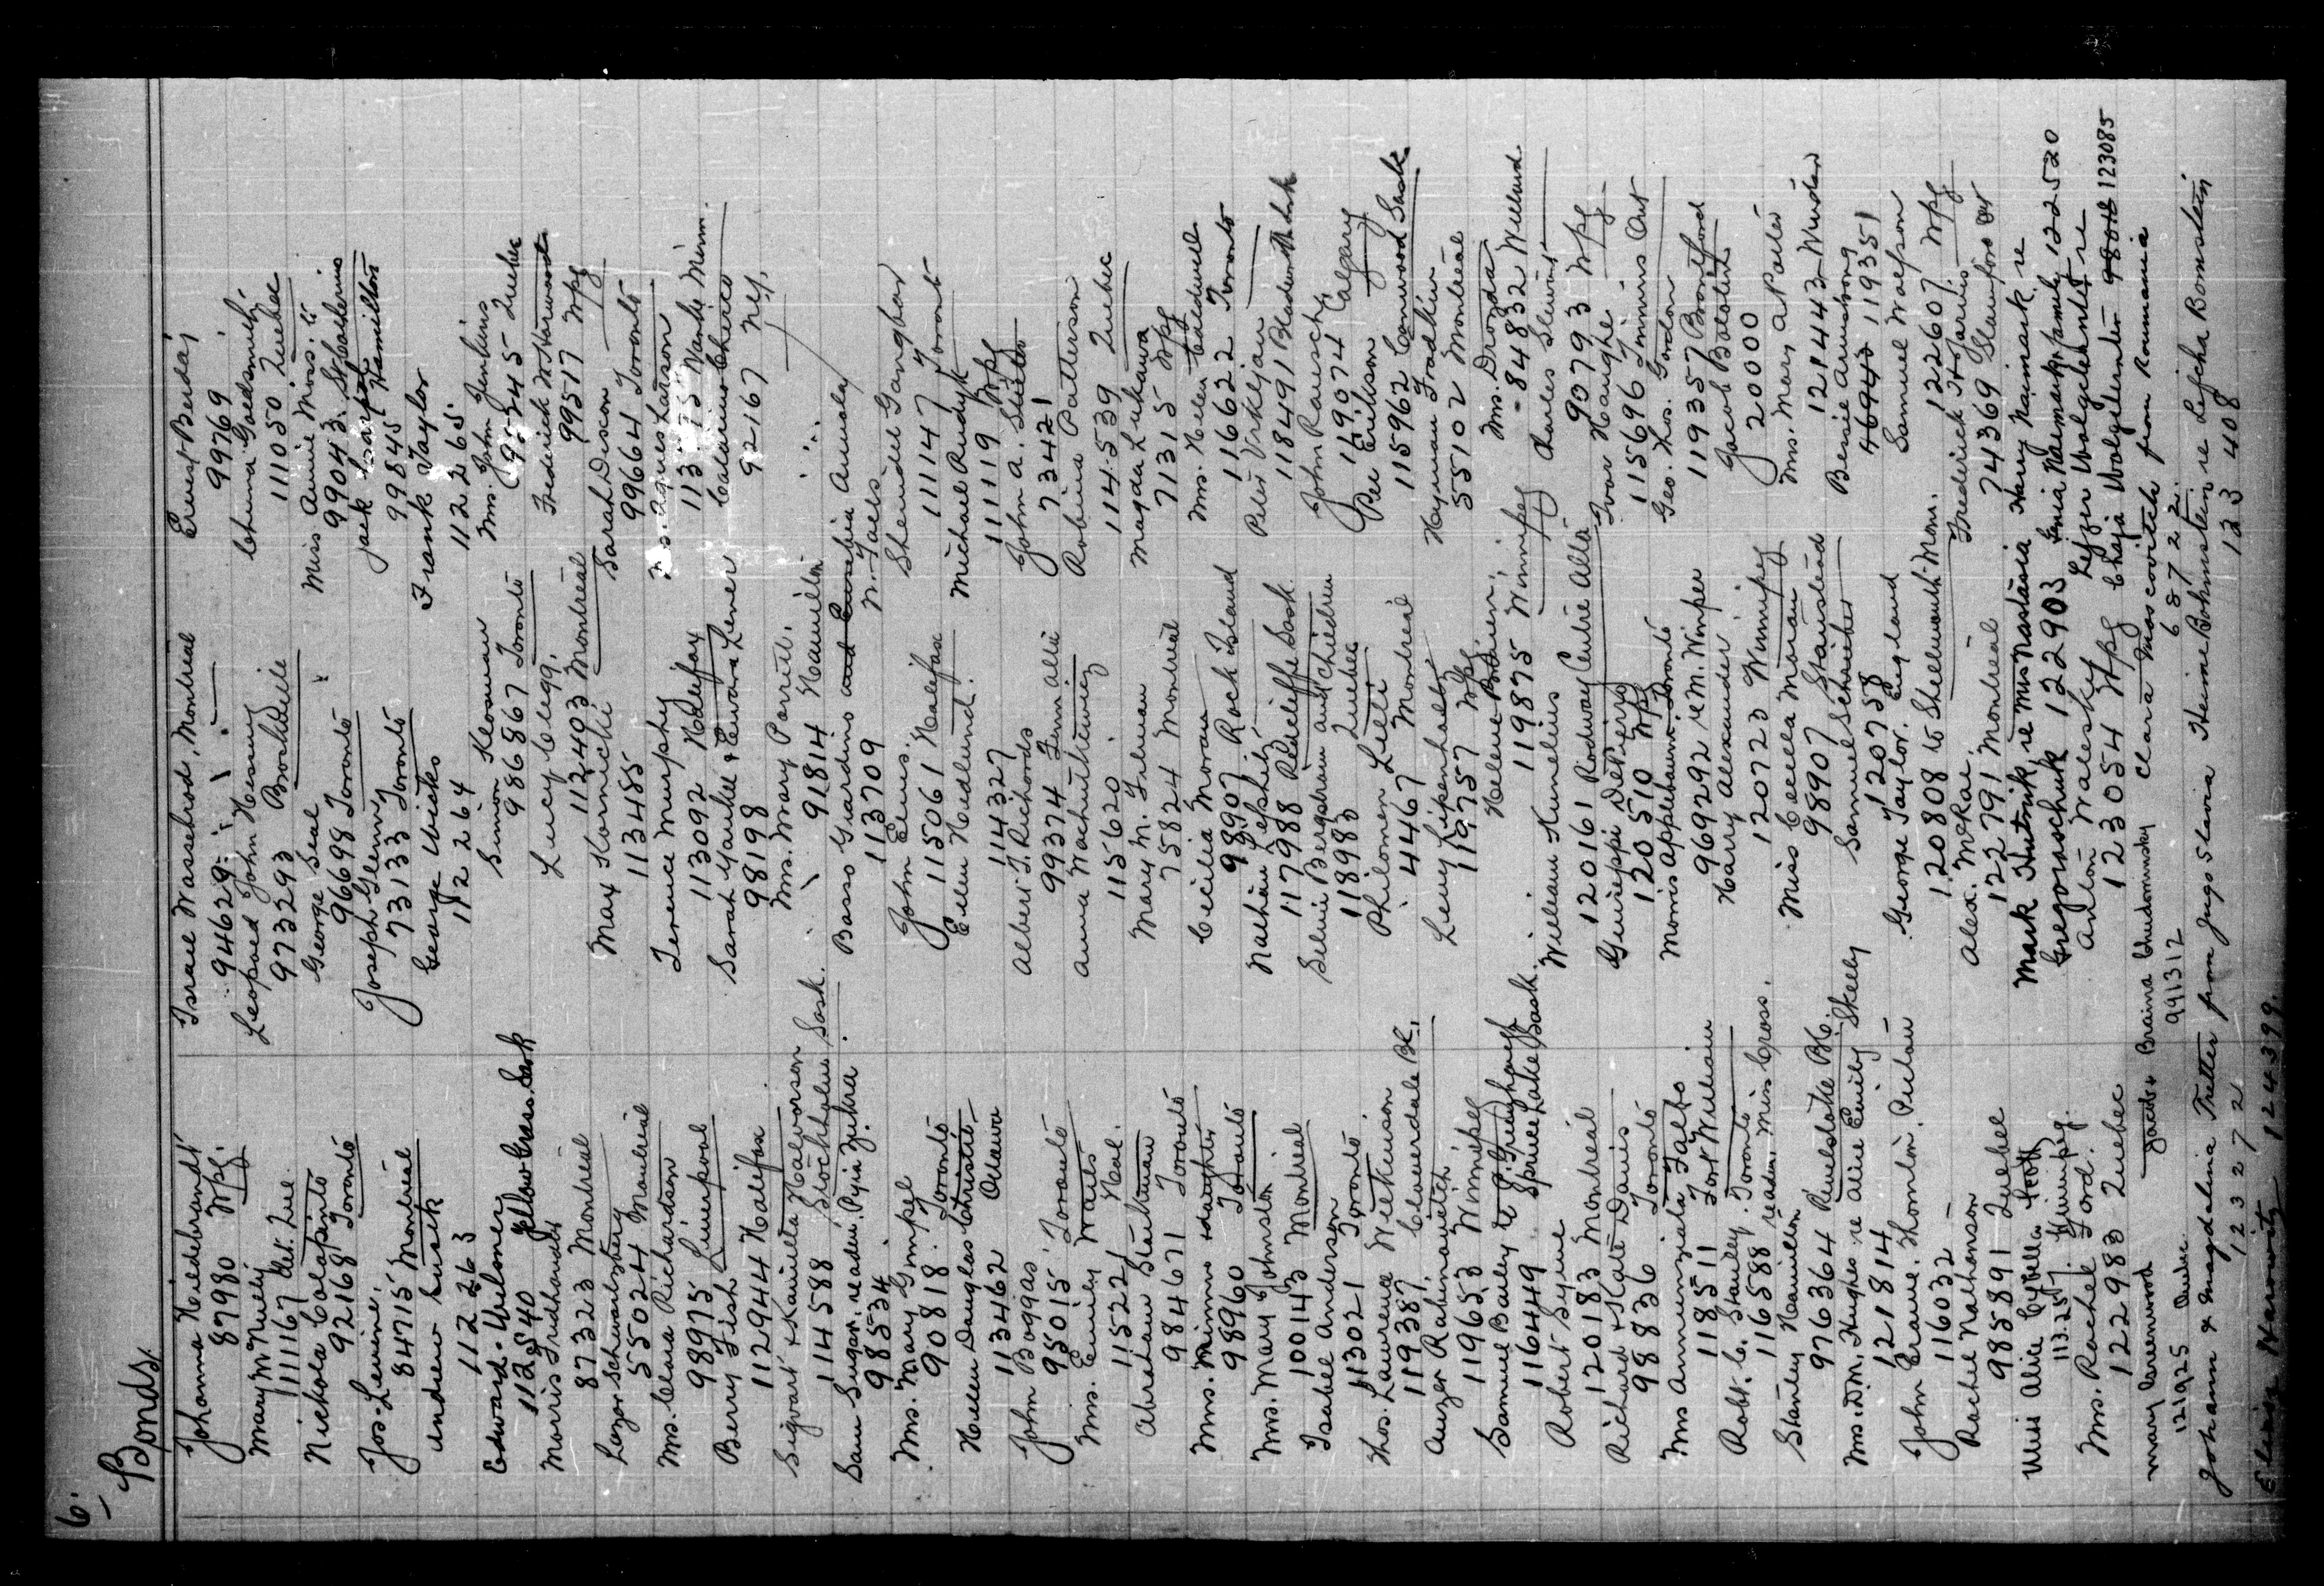 6.
Bonds.
Johanna Hildebrandt
87980 Wpg.
Mary McNeely
111167 Det. Que.
Nichola Colapinto
92168 Toronto
Jos. Levine.
84715 Montreal
Andrew Lusik
112263
Edward Urlones
112540 Yellow Grass. Sask
Morris Fridhandl
87323 Montreal
Lazar Schwartzberg
550244 Montreal
Mrs. Clara Richardson
98975 Liverpool
Berry Fish
1129444 Halifax
Sigvart & Kamilla Halvorson
114588 Stockholm Sask.
Sam Sugar, readm. Pyia Zukra.
98534
Mrs. Mary Gimpel
90818. Toronto
Helen Douglas Christie
113462 Ottawa
John Boggas
95015 Toronto
Mrs. Emily Watts
115221 Hal.
Abraham Startman
984671 Toronto
Mrs. Minnie & daughter
98960 Toronto
Mrs. Mary Johnston
100143 Montreal
Isabel Anderson
113021 Toronto
Thos. Laurence Wilkinson
119387 Cloverdale BC.
Auzer Rabinovitch
119653 Winnipeg
Samuel Bailey
116449 Spruce Lake Sask.
Robert Syme
120183 Montreal
Richard & Kate Davis
98836 Toronto
Mrs Annunziata Falbo
118511 Fort William
Robt. C. Stanley. Toronto
116588 readm. Miss Cross.
Stanley Hamilton
976364 Revelstoke BC.
Mrs. D.M. Hughes re Alice Emily Skelly
121814
John Crane. Thornton. Pulau
116032
Rachel Nathenson
985891 Quebec
Miss Alice Cybella Scott
113.257. Winnipeg.
Mrs. Rachel Ford.
122983 Quebec
Mary Greenwood
121925 Quebec
Johann & Magdalina Tretter from Jugo Slavia
123272
Elias Harowitz 124399.
Israel Wasserbrod, Montreal
94629
Leopold John Henry
973293 Brockville
George Seal
96698 Toronto
Joseph Glenny
73133 Toronto
George Wicks
112264
Simon Klosman
986867 Toronto
Lucy Clegg.
112403 Montreal
Max Kornicki
113485
Terence Murphy
113092 Halifax
Sarah Yankel & Edward Lener
98198
Mrs. Mary Parrit.
91814 Hamilton
Basso Giardino and Eusebia Annola
113709
John Ellis.
115061 Halifax
Ellen Hedlund.
114327
Albert J. Richards
99374
Anna Wachutkewicz
115620.
Mary M. Freeman
75824 Montreal
Cecilia Moran
98907. Rock Island
Nathan Lepshitz
117988 Radcliffe Sask.
Selvie Bergstrom and children
118983 Quebec
Philomen Lelli
4467 Montreal
Levy Lipenholtz
119757 Wpg
Helene Bodien.
119875 Winnipeg
William Kumelius
120161 Rodway Centre Alta
Guiseppi DePierro
120510 Wpg
Morris Applebaum. Toronto
969292 re M. Winper
Harry Alexander
120723 Winnipeg
Miss Cecelia Moran
98907 Stanstead
Samuel Schieber
120758
George Taylor. England
120808 to Shellmouth Man.
Alex. McRae.
122791 Montreal
Mark Hutnik, re Miss Nastasia
Gregoraschuk 122903
Anton Waleskey
123054 Wpg
Jacob & Braina Chudomnsky
991312
Ernest Berday
99769
Chuma Goldsmith.
111050 Quebec
Miss Annie Moss.
99043. St. Catherines
Jack Sharpe
99845 Hamilton
Frank Taylor
112265.
Mrs. John Jenkins
983445 Quebec
Frederick W Harwood
99517 Wpg
Sarah Dixon
996664 Toronto
Mrs. Agnes Larson
113775
Calarino Cherico
92167 Nef.
N. Taels
Shendil Gangbar
111147 Toronto
Michael Rudyk
111119 Wpg
John A. Suter
73421
Robina Patterson
114539 Quebec
Magda Lukawa
71315 Wpg
Mrs. Helen Caldwell
116622 Toronto
Peter Vrkljan
118491
John Rausch
169074 Calgary
Per Erikson
115962 Canwood Sask.
Hyman Fradkin
55102 Montreal
Mrs. Drozda
84832 Welland.
Charles Slewins
Ivar Haughe
90793 Wpg
115696 Timmins Ont
Geo. Thos. Gordon
119357 Brantford
Jacob Bolotin
20000
Mrs. Mary A. Porter
121443 Windsor
Bessie Armstrong
46945 119351
Samuel Watson
122607 Wpg
Frederick H. Jarvis
74369 Stamford Ont
Harry Naimark, re
Genia Naimark & family 122520
Lejzer Wolgelernter re
Chaja Wolgelernter 98018 123085
Clara Moscovitch from Roumania
68722.
Heime Bohmstein re Lejcha Bornstein
123408